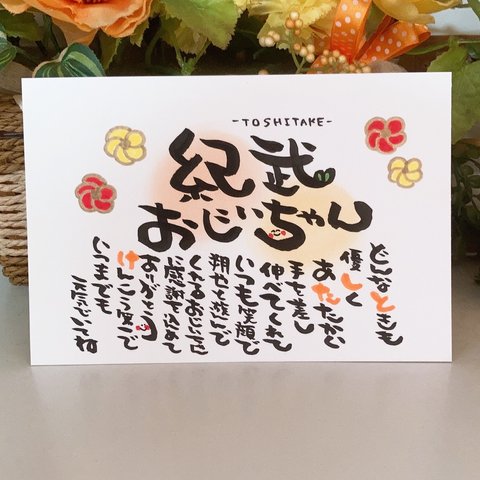 -TOSHITAKE-
紀武
おじいちゃん
どんなときも
優しく
あたたかい
手を差し
伸べてくれて
いつも笑顔で
翔也と遊んで
くれるおじいちゃんに
に感謝を込めて
ありがとう
けんこう笑顔で
いつまでも
元気でいてね